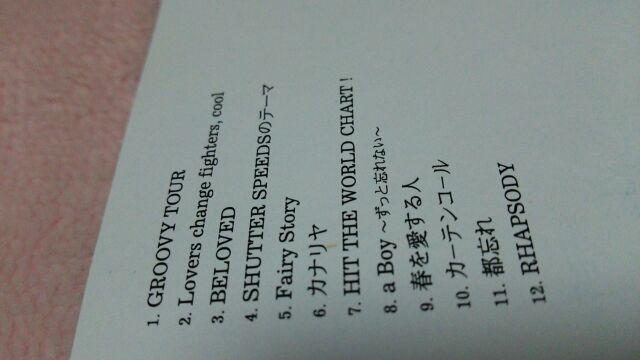 1. GROOVY TOUR
2. Lovers change fighters, cool
3. BELOVED
4. SHUTTER SPEEDSのテーマ
5. Fairy Story
6. カナリヤ
7. HIT THE WORLD CHART!
8. a Boy 〜ずっと忘れない〜
9. 春を愛する人
10. カーテンコール
11. 都忘れ
12. RHAPSODY